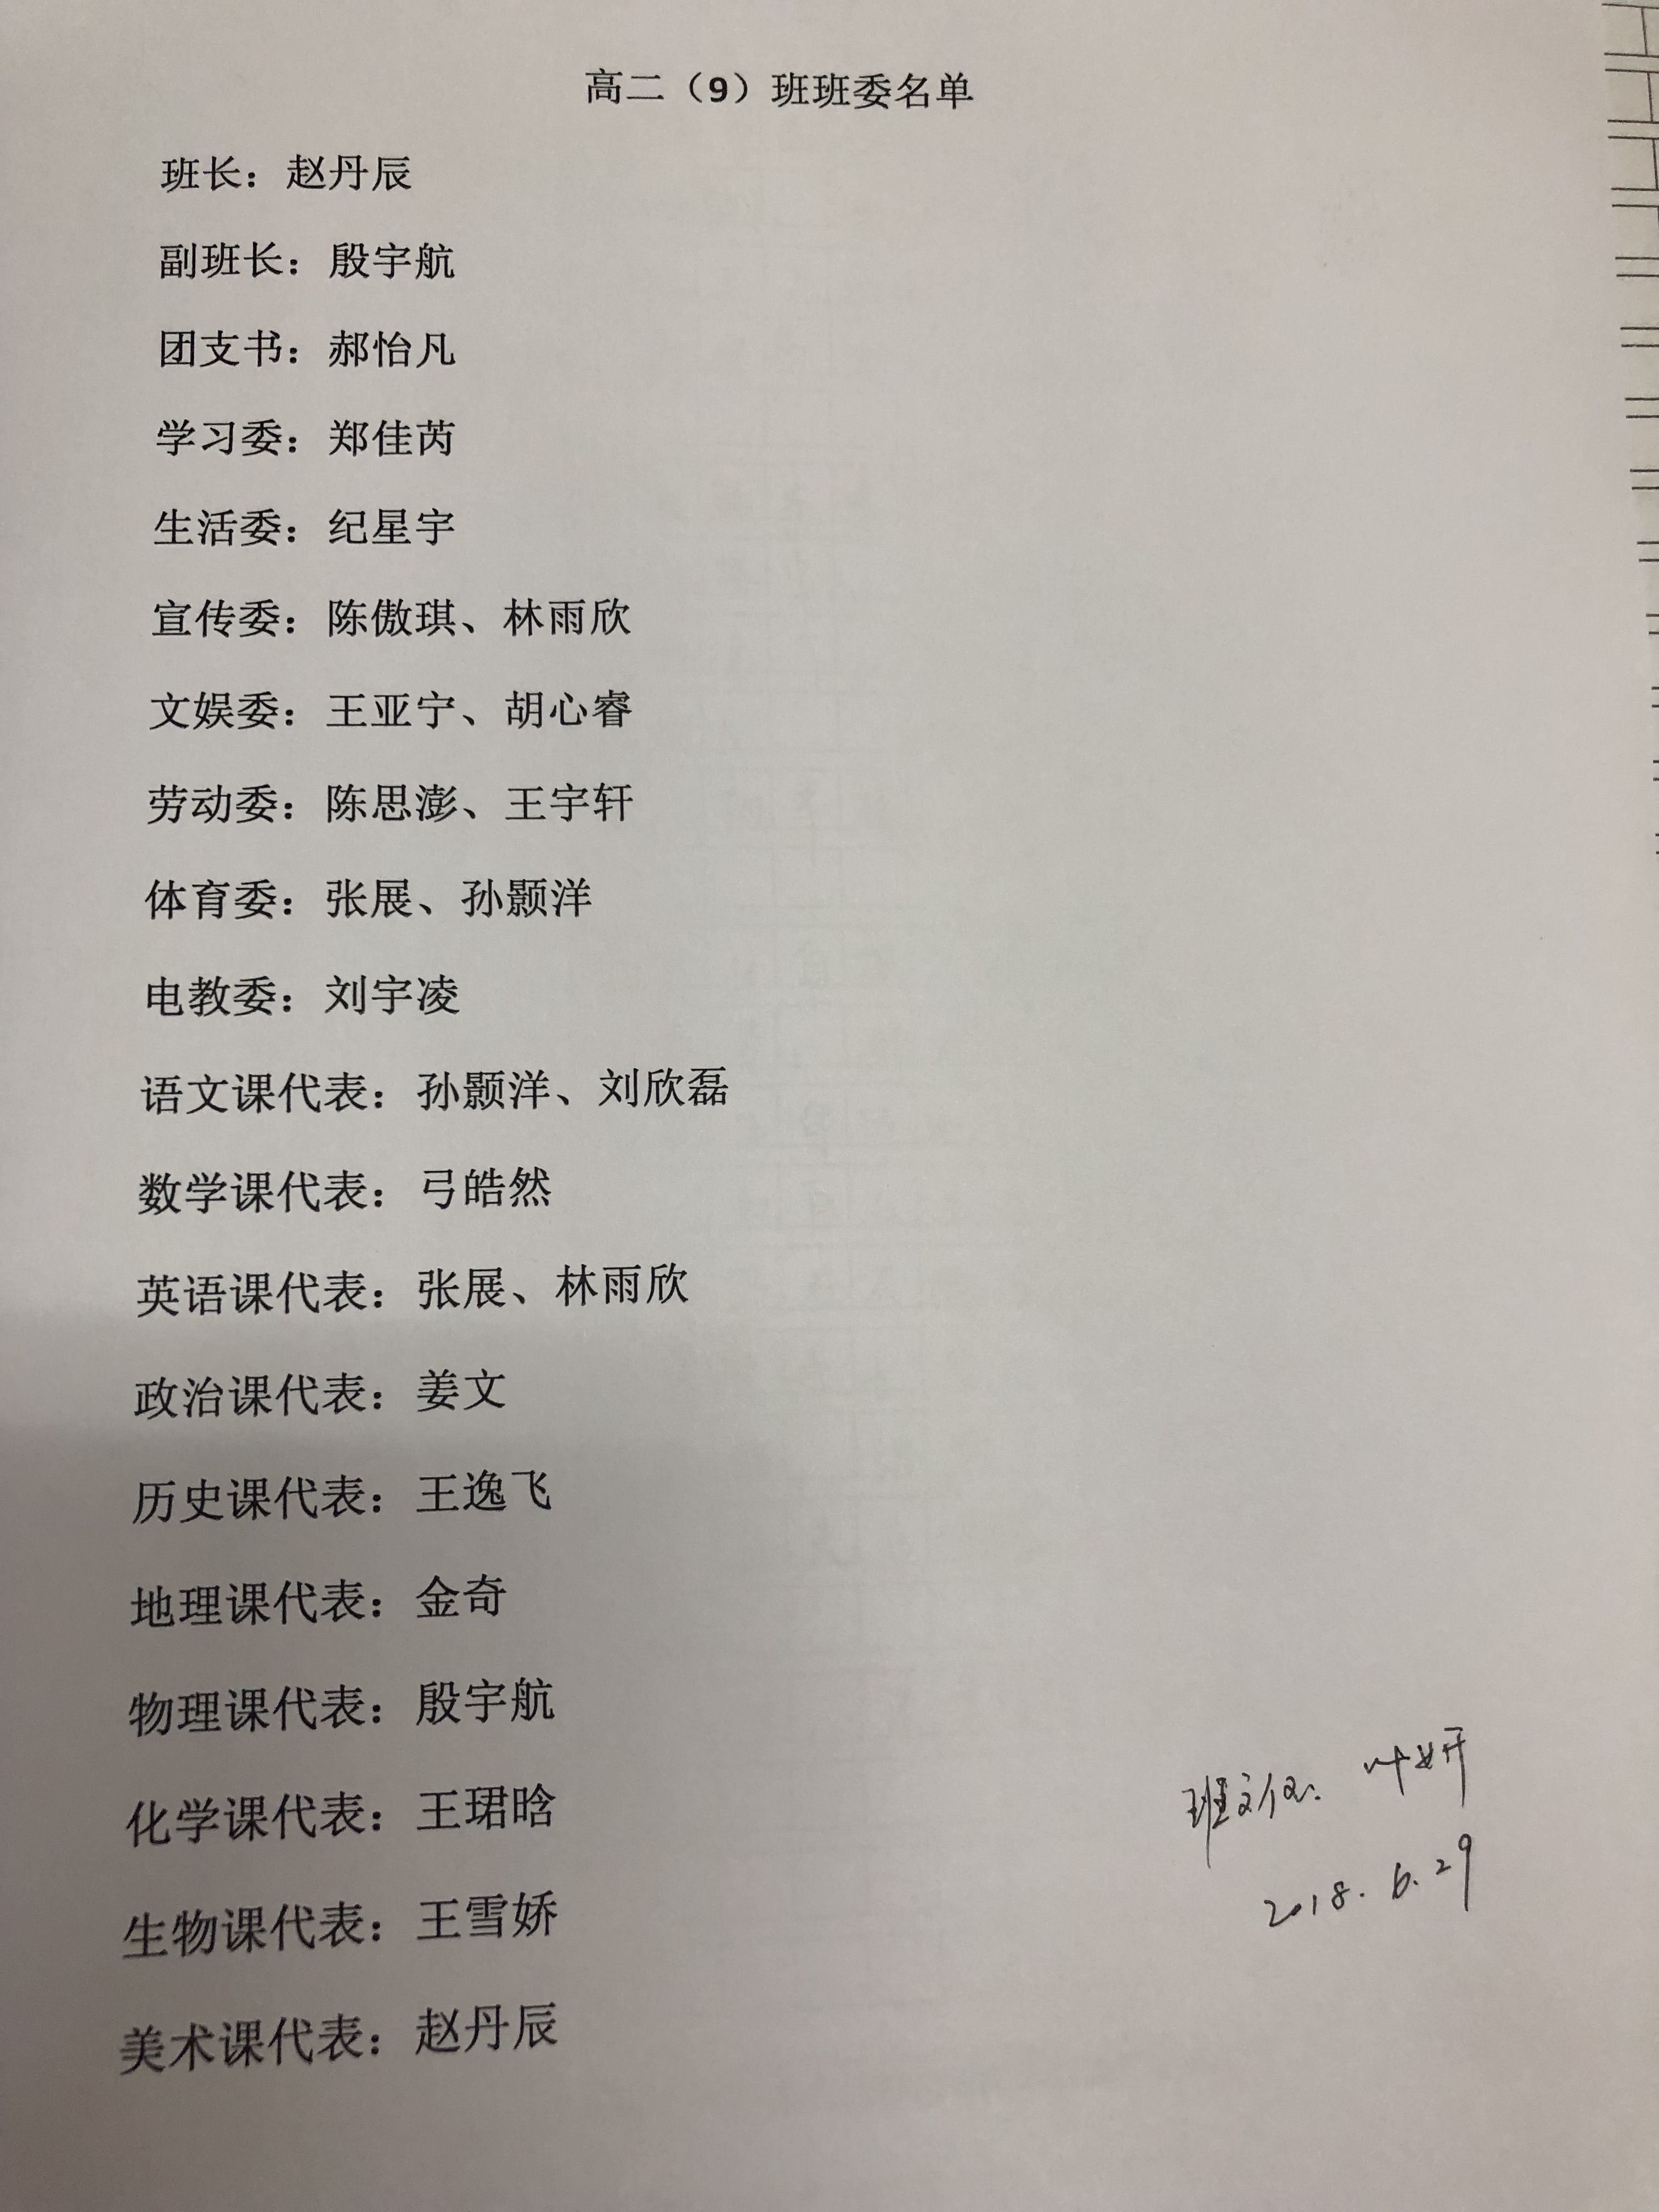 高二（9）班班委名单
班长：赵丹辰
副班长：殷宇航
团支书：郝怡凡
学习委：郑佳芮
生活委：纪星宇
宣传委：陈傲琪、林雨欣
文娱委：王亚宁、胡心睿
劳动委：陈思澎、王宇轩
体育委：张展、孙颢洋
电教委：刘宇凌
语文课代表：孙颢洋、刘欣磊
数学课代表：弓皓然
英语课代表：张展、林雨欣
政治课代表：姜文
历史课代表：王逸飞
地理课代表：金奇
物理课代表：殷宇航
化学课代表：王珺晗
生物课代表：王雪娇
美术课代表：赵丹辰
叶妍
2018.6.29